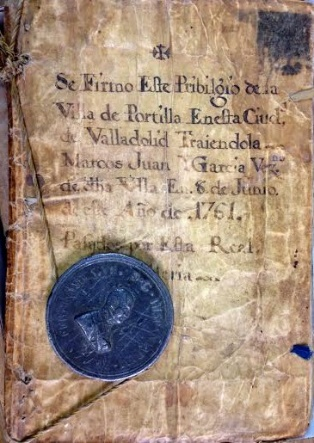 Se Firmo Este Pribilgio de la
Villa de Portilla Enesta Ciud.ᵈ
de Valladolid Traiendola
Marcos Juan Garcia Vez.ⁿᵒ
de dha Villa En. 8. de Junio.
de este Año de 1761.
por Esta Real